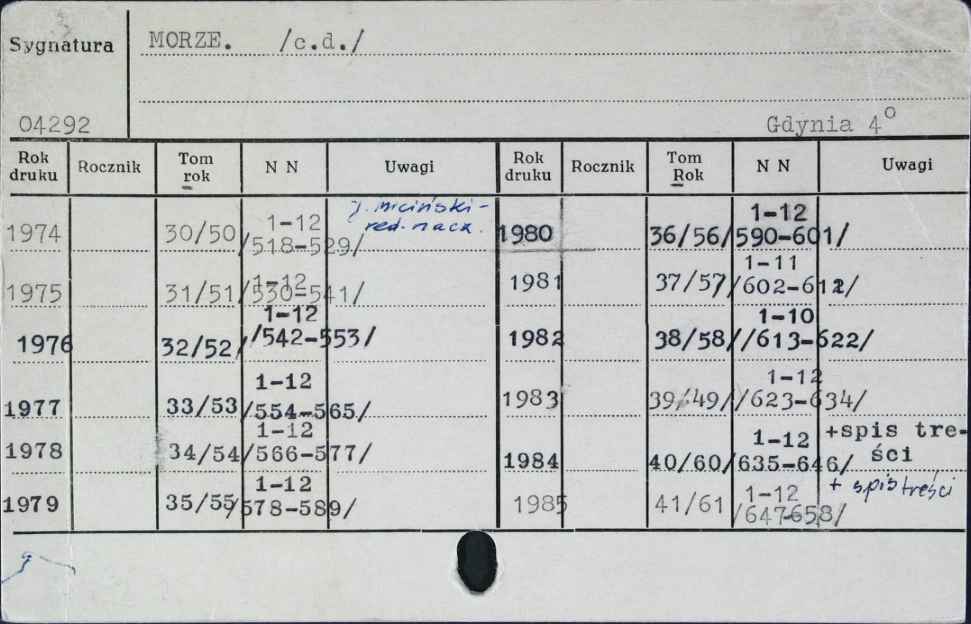 Sygnatura MORZE. /c.d./
04292 Gdynia 4°
Rok druku Rocznik Tom rok N N Uwagi Rok druku Rocznik Tom Rok N N Uwagi
1974 30/50 1-12 /518-529/ J. Miciński - red. nacz.
1975 31/51 1-12 /530-541/
1976 32/52 1-12 /542-553/
1977 33/53 1-12 /554-565/
1978 34/54 1-12 /566-577/
1979 35/55 1-12 /578-589/
1980 36/56 1-12 /590-601/
1981 37/57 1-11 /602-612/
1982 38/58 1-10 //613-622/
1983 39/49 1-12 //623-634/
1984 40/60 1-12 /635-646/ +spis tre-
ści
1985 41/61 1-12 /647-658/ + spis treści